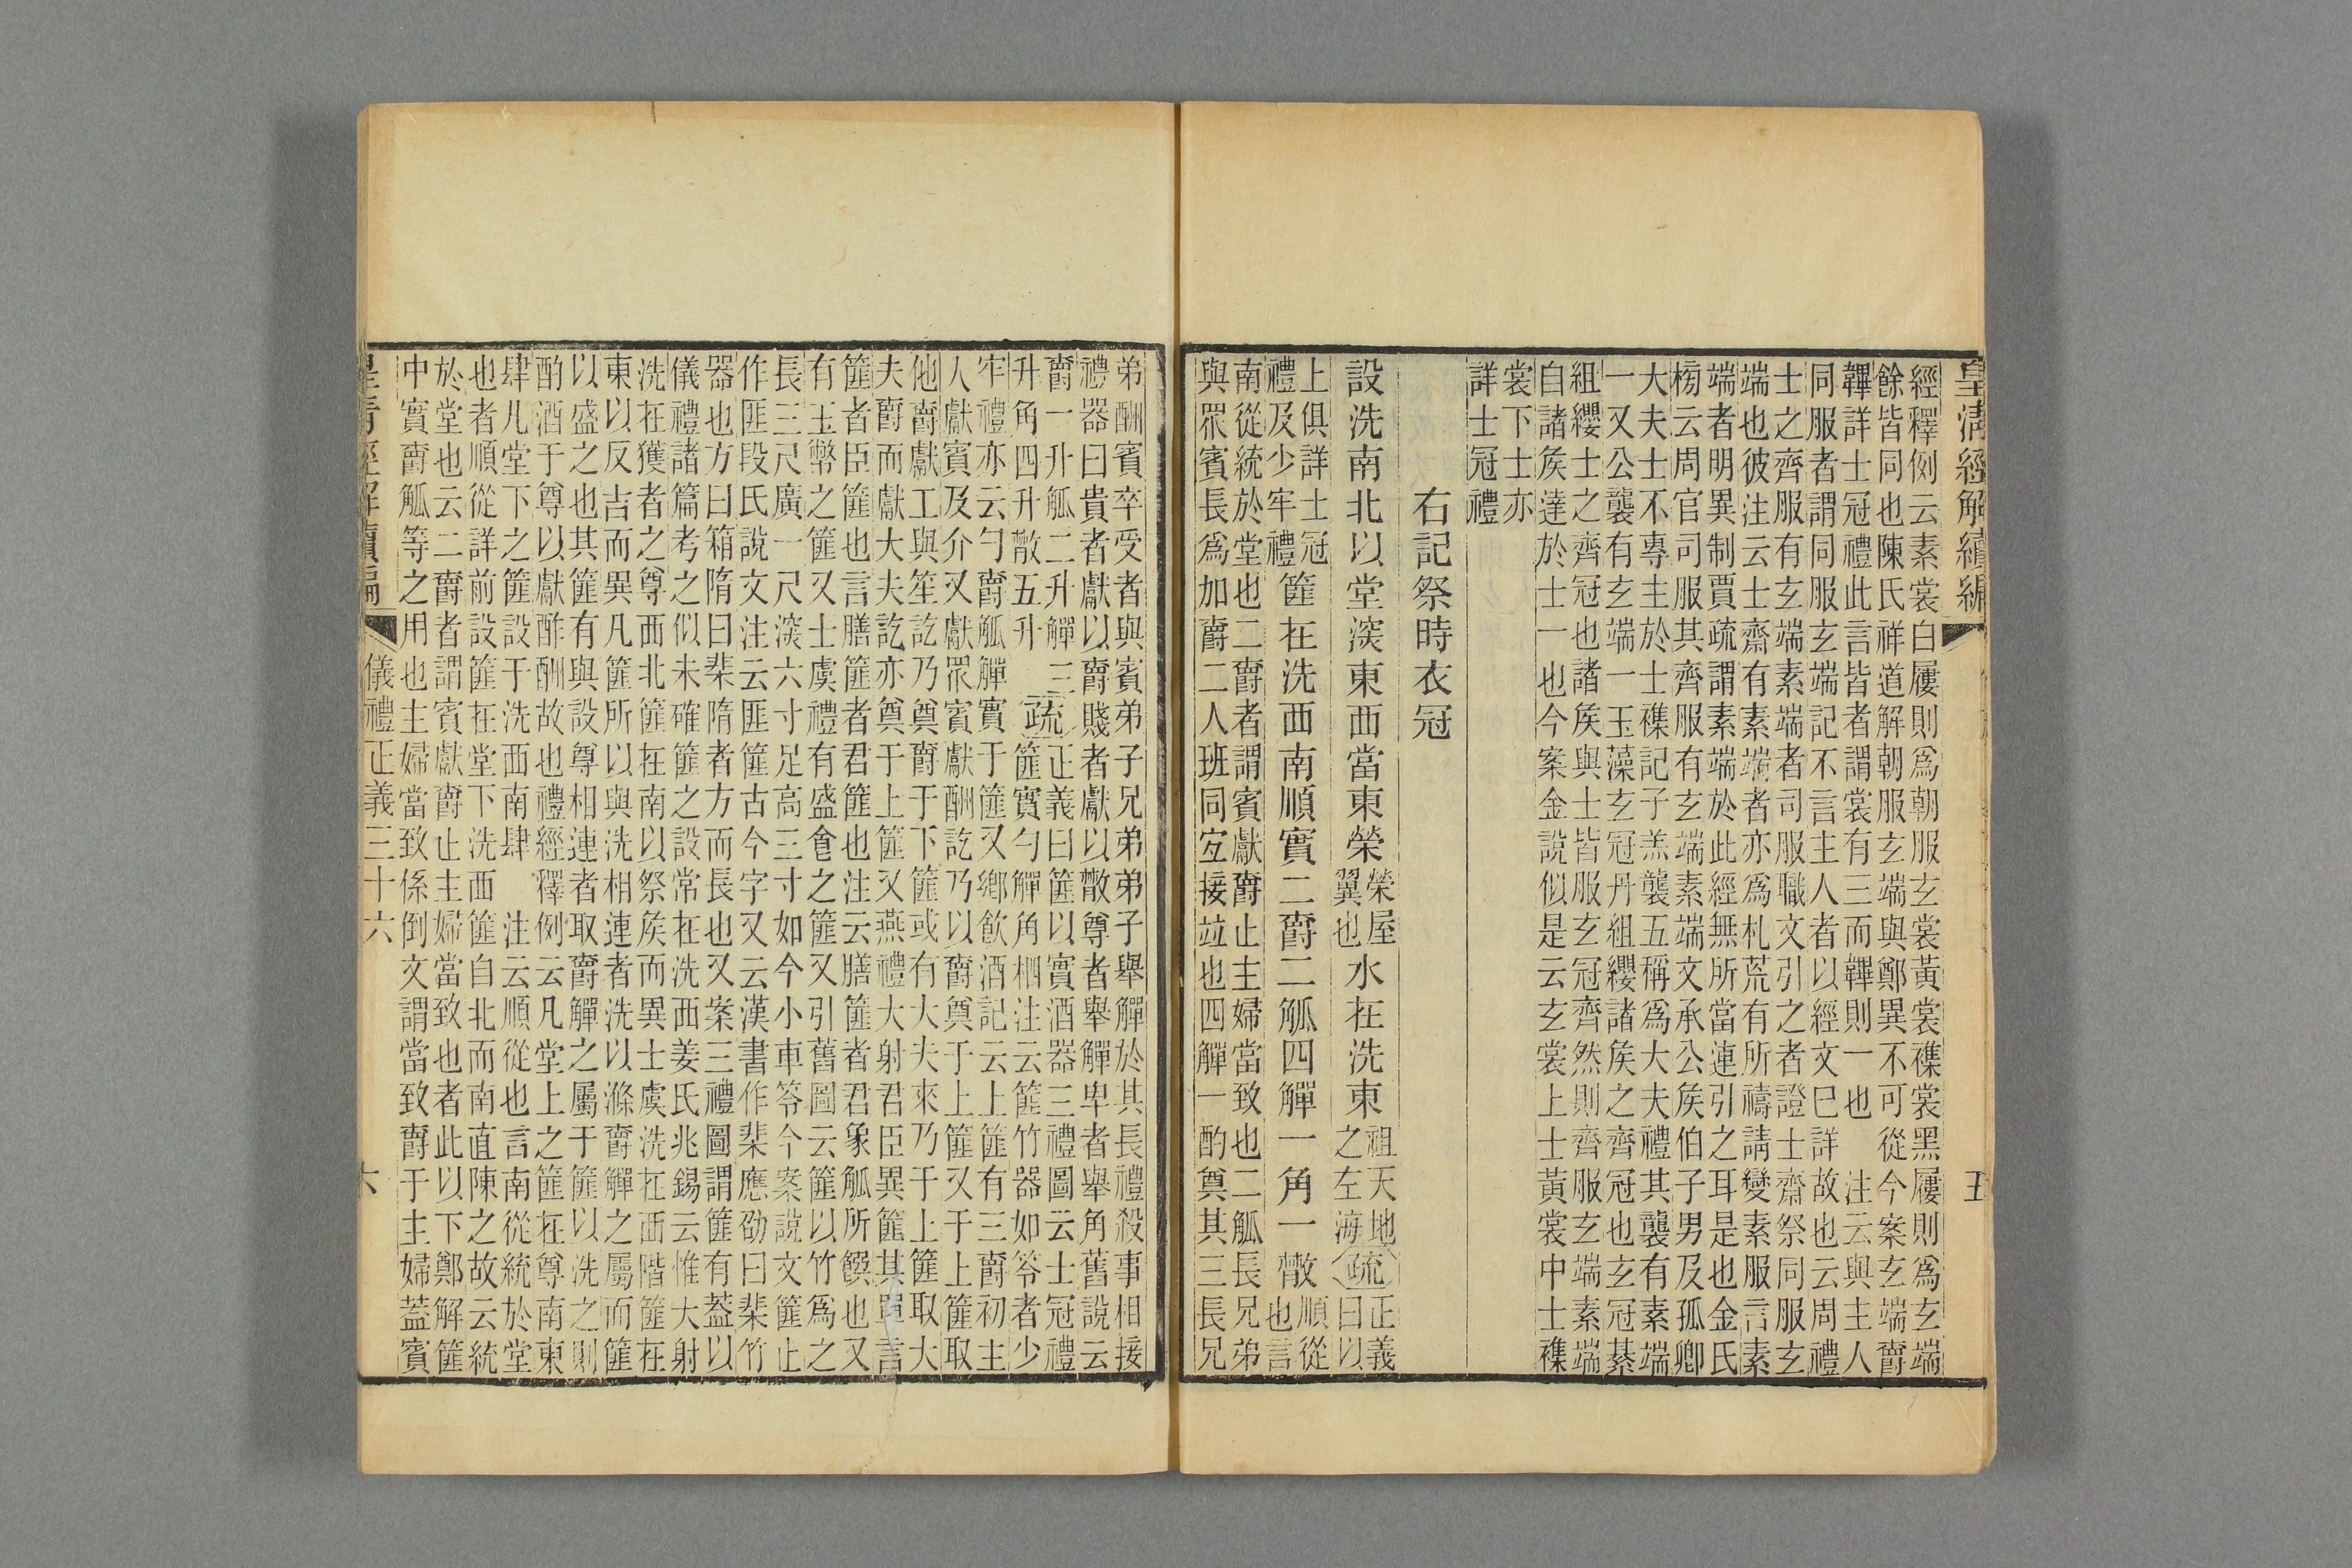 皇清經解續編
五
經釋例云素裳白屨則爲朝服玄裳黃裳襍裳黑屨則爲玄端
餘皆同也陳氏祥道解朝服玄端與鄭異不可從今案玄端爵
韠詳士冠禮此言皆者謂裳有三而韠則一也　注云與主人
同服者謂同服玄端記不言主人者以經文巳詳故也云周禮
士之齊服有玄端素端者司服職文引之者證士齋祭同服玄
端也彼注云士齋有素端者亦爲札荒有所禱請變素服言素
端者明異制賈疏謂素端於此經無所當連引之耳是也金氏
榜云周官司服其齊服有玄端素端文承公矦伯子男及孤卿
大夫士不專主於士襍記子羔襲五稱爲大夫禮其襲有素端
一又公襲有玄端一玉藻玄冠丹組纓諸矦之齊冠也玄冠綦
組纓士之齊冠也諸矦與士皆服玄冠齊然則齊服玄端素端
自諸矦達於士一也今案金說似是云玄裳上士黃裳中士襍
裳下士亦
詳士冠禮
右記祭時衣冠
設洗南北以堂深東西當東榮
榮屋
翼也
水在洗東
祖天地
之左海
疏
正義
曰以
上俱詳士冠
禮及少牢禮
篚在洗西南順實二爵二觚四觶一角一散
順從
也言
南從統於堂也二爵者謂賓獻爵止主婦當致也二觚長兄弟
與眾賓長爲加爵二人班同宐接竝也四觶一酌奠其三長兄
弟酬賓卒受者與賓弟子兄弟弟子舉觶於其長禮殺事相接
禮器曰貴者獻以爵賤者獻以散尊者舉觶卑者舉角舊說云
爵一升觚二升觶三
升角四升散五升
疏
正義曰篚以實酒器三禮圖云士冠禮
篚實勺觶角柶注云篚竹器如笭者少
牢禮亦云勺爵觚觶實于篚又鄉飮酒記云上篚有三爵初主
人獻賓及介又獻眾賓獻酬訖乃以爵奠于上篚又于上篚取
他爵獻工與笙訖乃奠爵于下篚或有大夫來乃于上篚取大
夫爵而獻大夫訖亦奠于上篚又燕禮大射君臣異篚其單言
篚者臣篚也言膳篚者君篚也注云膳篚者君象觚所饌也又
有玉幣之篚又士虞禮有盛食之篚又引舊圖云篚以竹爲之
長三尺廣一尺深六寸足高三寸如今小車笭今案說文篚止
作匪段氏說文注云匪篚古今字又云漢書作棐應劭曰棐竹
器也方曰箱隋曰棐隋者方而長也又案三禮圖謂篚有蓋以
儀禮諸篇考之似未確篚之設常在洗西姜氏兆錫云惟大射
洗在獲者之尊西北篚在南以祭矦而異士虞洗在西階篚在
東以反吉而異凡篚所以與洗相連者洗以滌爵觶之屬而篚
以盛之也其篚有與設尊相連者取爵觶之屬于篚以洗之則
酌酒于尊以獻酢酬故也禮經釋例云凡堂上之篚在尊南東
肆凡堂下之篚設于洗西南肆　注云順從也言南從統於堂
也者順從詳前設篚在堂下洗西篚自北而南直陳之故云統
於堂也云二爵者謂賓獻爵止主婦當致也者此以下鄭解篚
中實爵觚等之用也主婦當致係倒文謂當致爵于主婦蓋賓
皇清經解續編
儀禮正義三十六
六